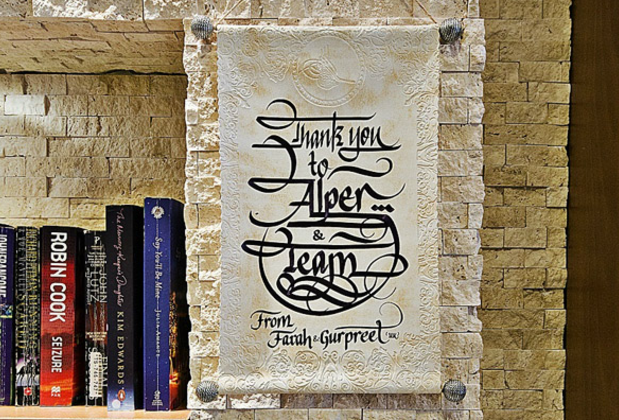 Thank you
to
Alper...
&
Team
From
Farah & Gurpreet
ROBIN COOK
SEIZURE
JOHN
LUTZ
FINAL
The Memory Keeper's Daughter
KIM EDWARDS
Say You'll Be Mine
JULIA AMANTE